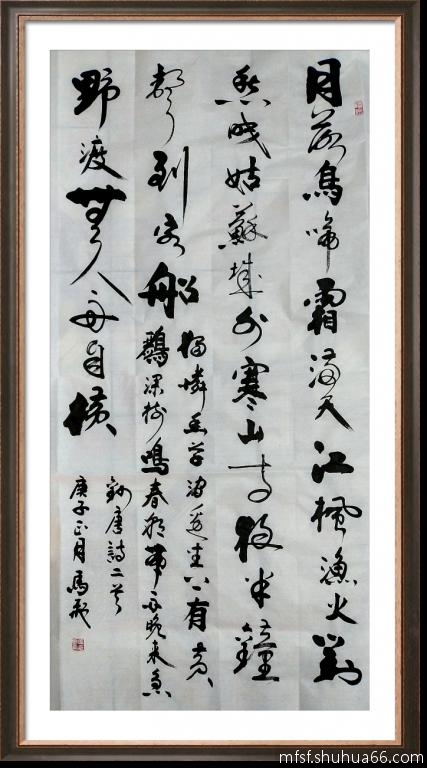 月落烏啼霜滿天江楓漁火對
愁眠姑蘇城外寒山寺夜半鐘
聲到客船
獨憐幽草澗邊生上有黃
鸝深樹鳴春潮帶雨晚來急
野渡無人舟自橫
錄唐詩二首
庚子正月馬飛
mfsf.shuhua66.com